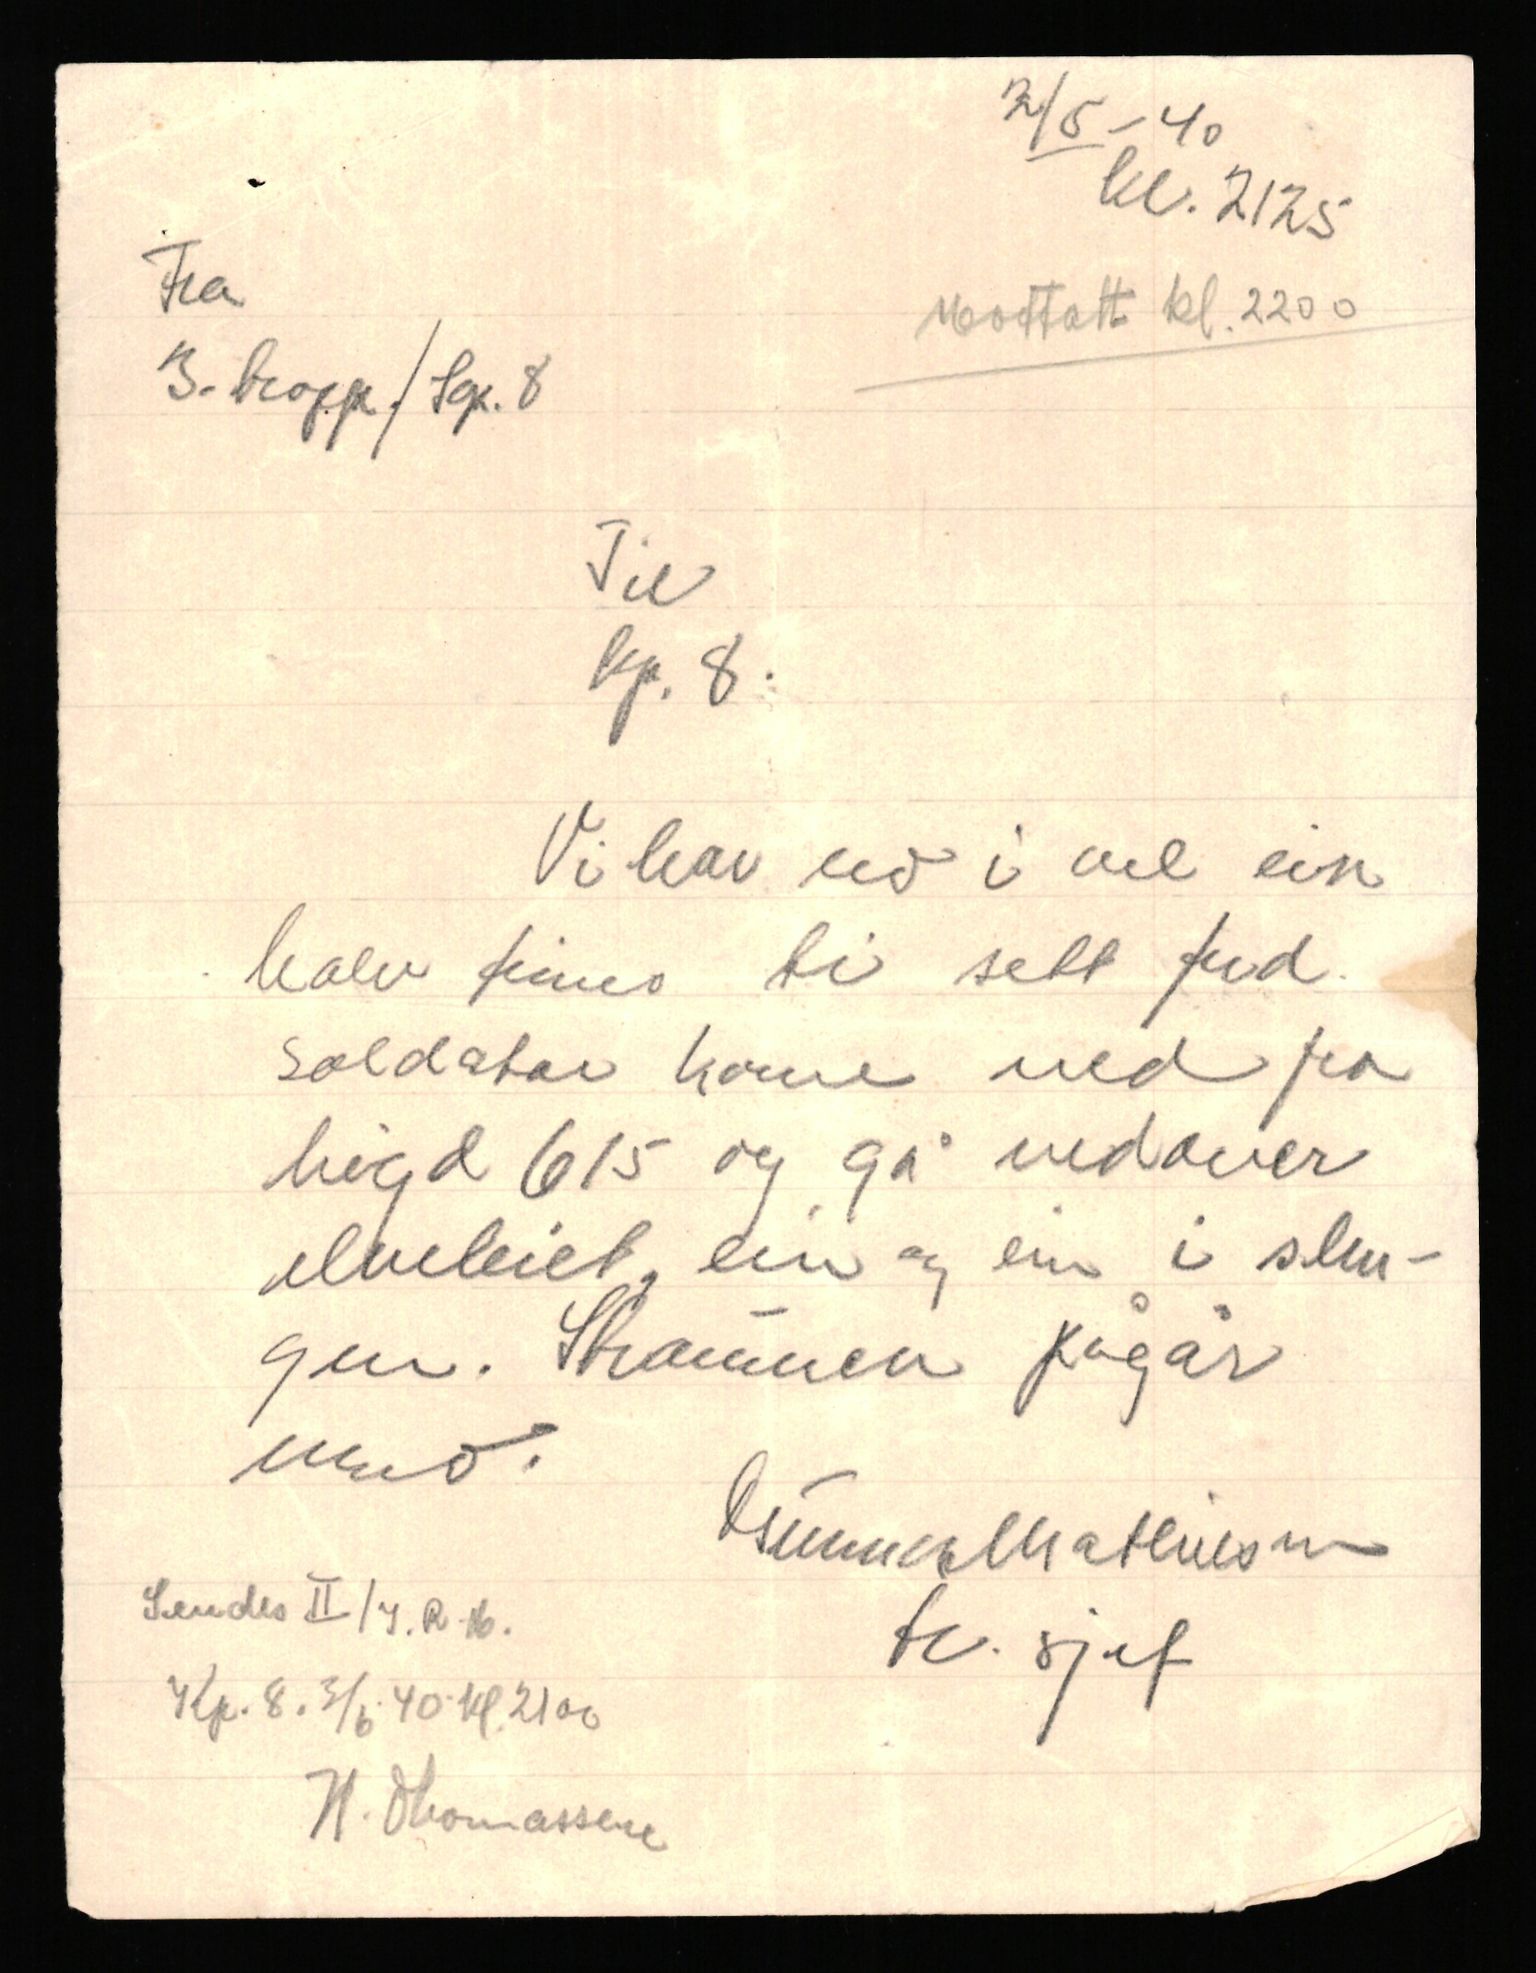 2/5-40
kl. 2125
Mottatt kl. 2200
Fra
3. tropp./Kp. 8
Til
kp. 8.
Vi har no i vel ein
halv times ti sett fid.
soldatar kome ned fra
høgd 615 og gå nedover
elveleiet, ein og ein i slen-
gen. Straumen pågår
ennå.
Gunnar Mathiesen
tr. sjef
Sendes II/I.R.16.
Kp. 8. 3/5 40 kl. 2100
H. Thomassen